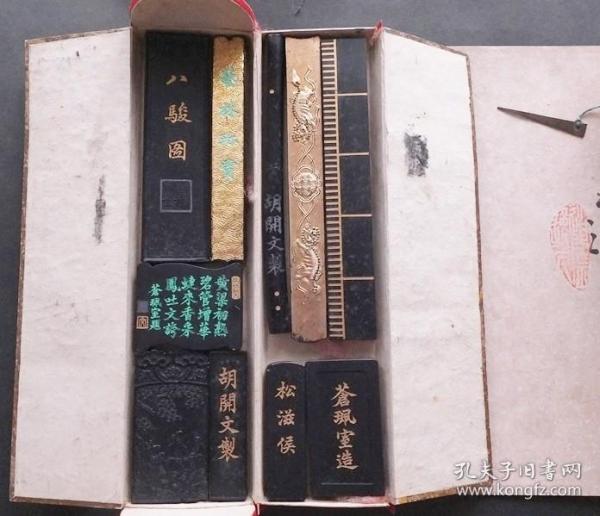 八駿圖
胡開文製
黃梁初熟
碧管增華
蜨來香案
鳳吐文誇
蒼珮室題
胡開文製
松滋侯
蒼珮室造
孔夫子旧书网
www.kongfz.com